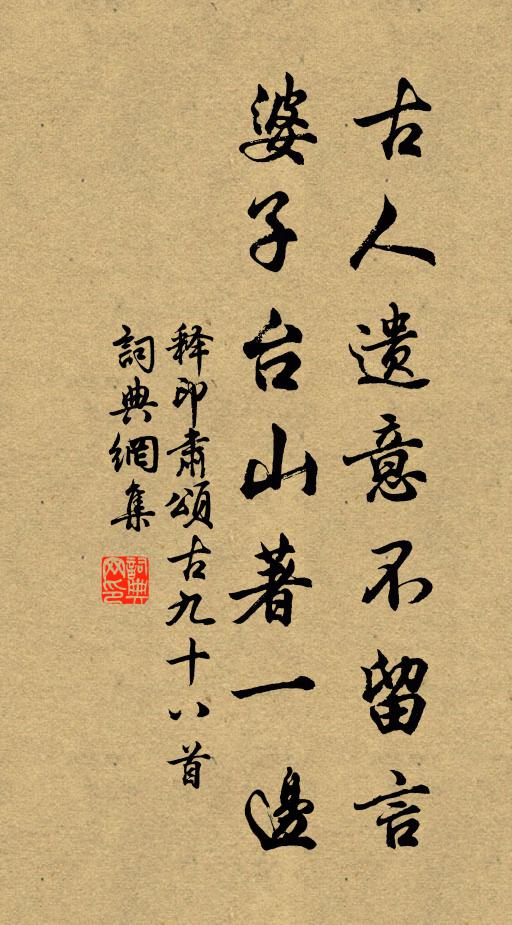 古人遺意不留言
婆子台山著一邊
释印肅頌古九十八首
詞典網集
詞典網印